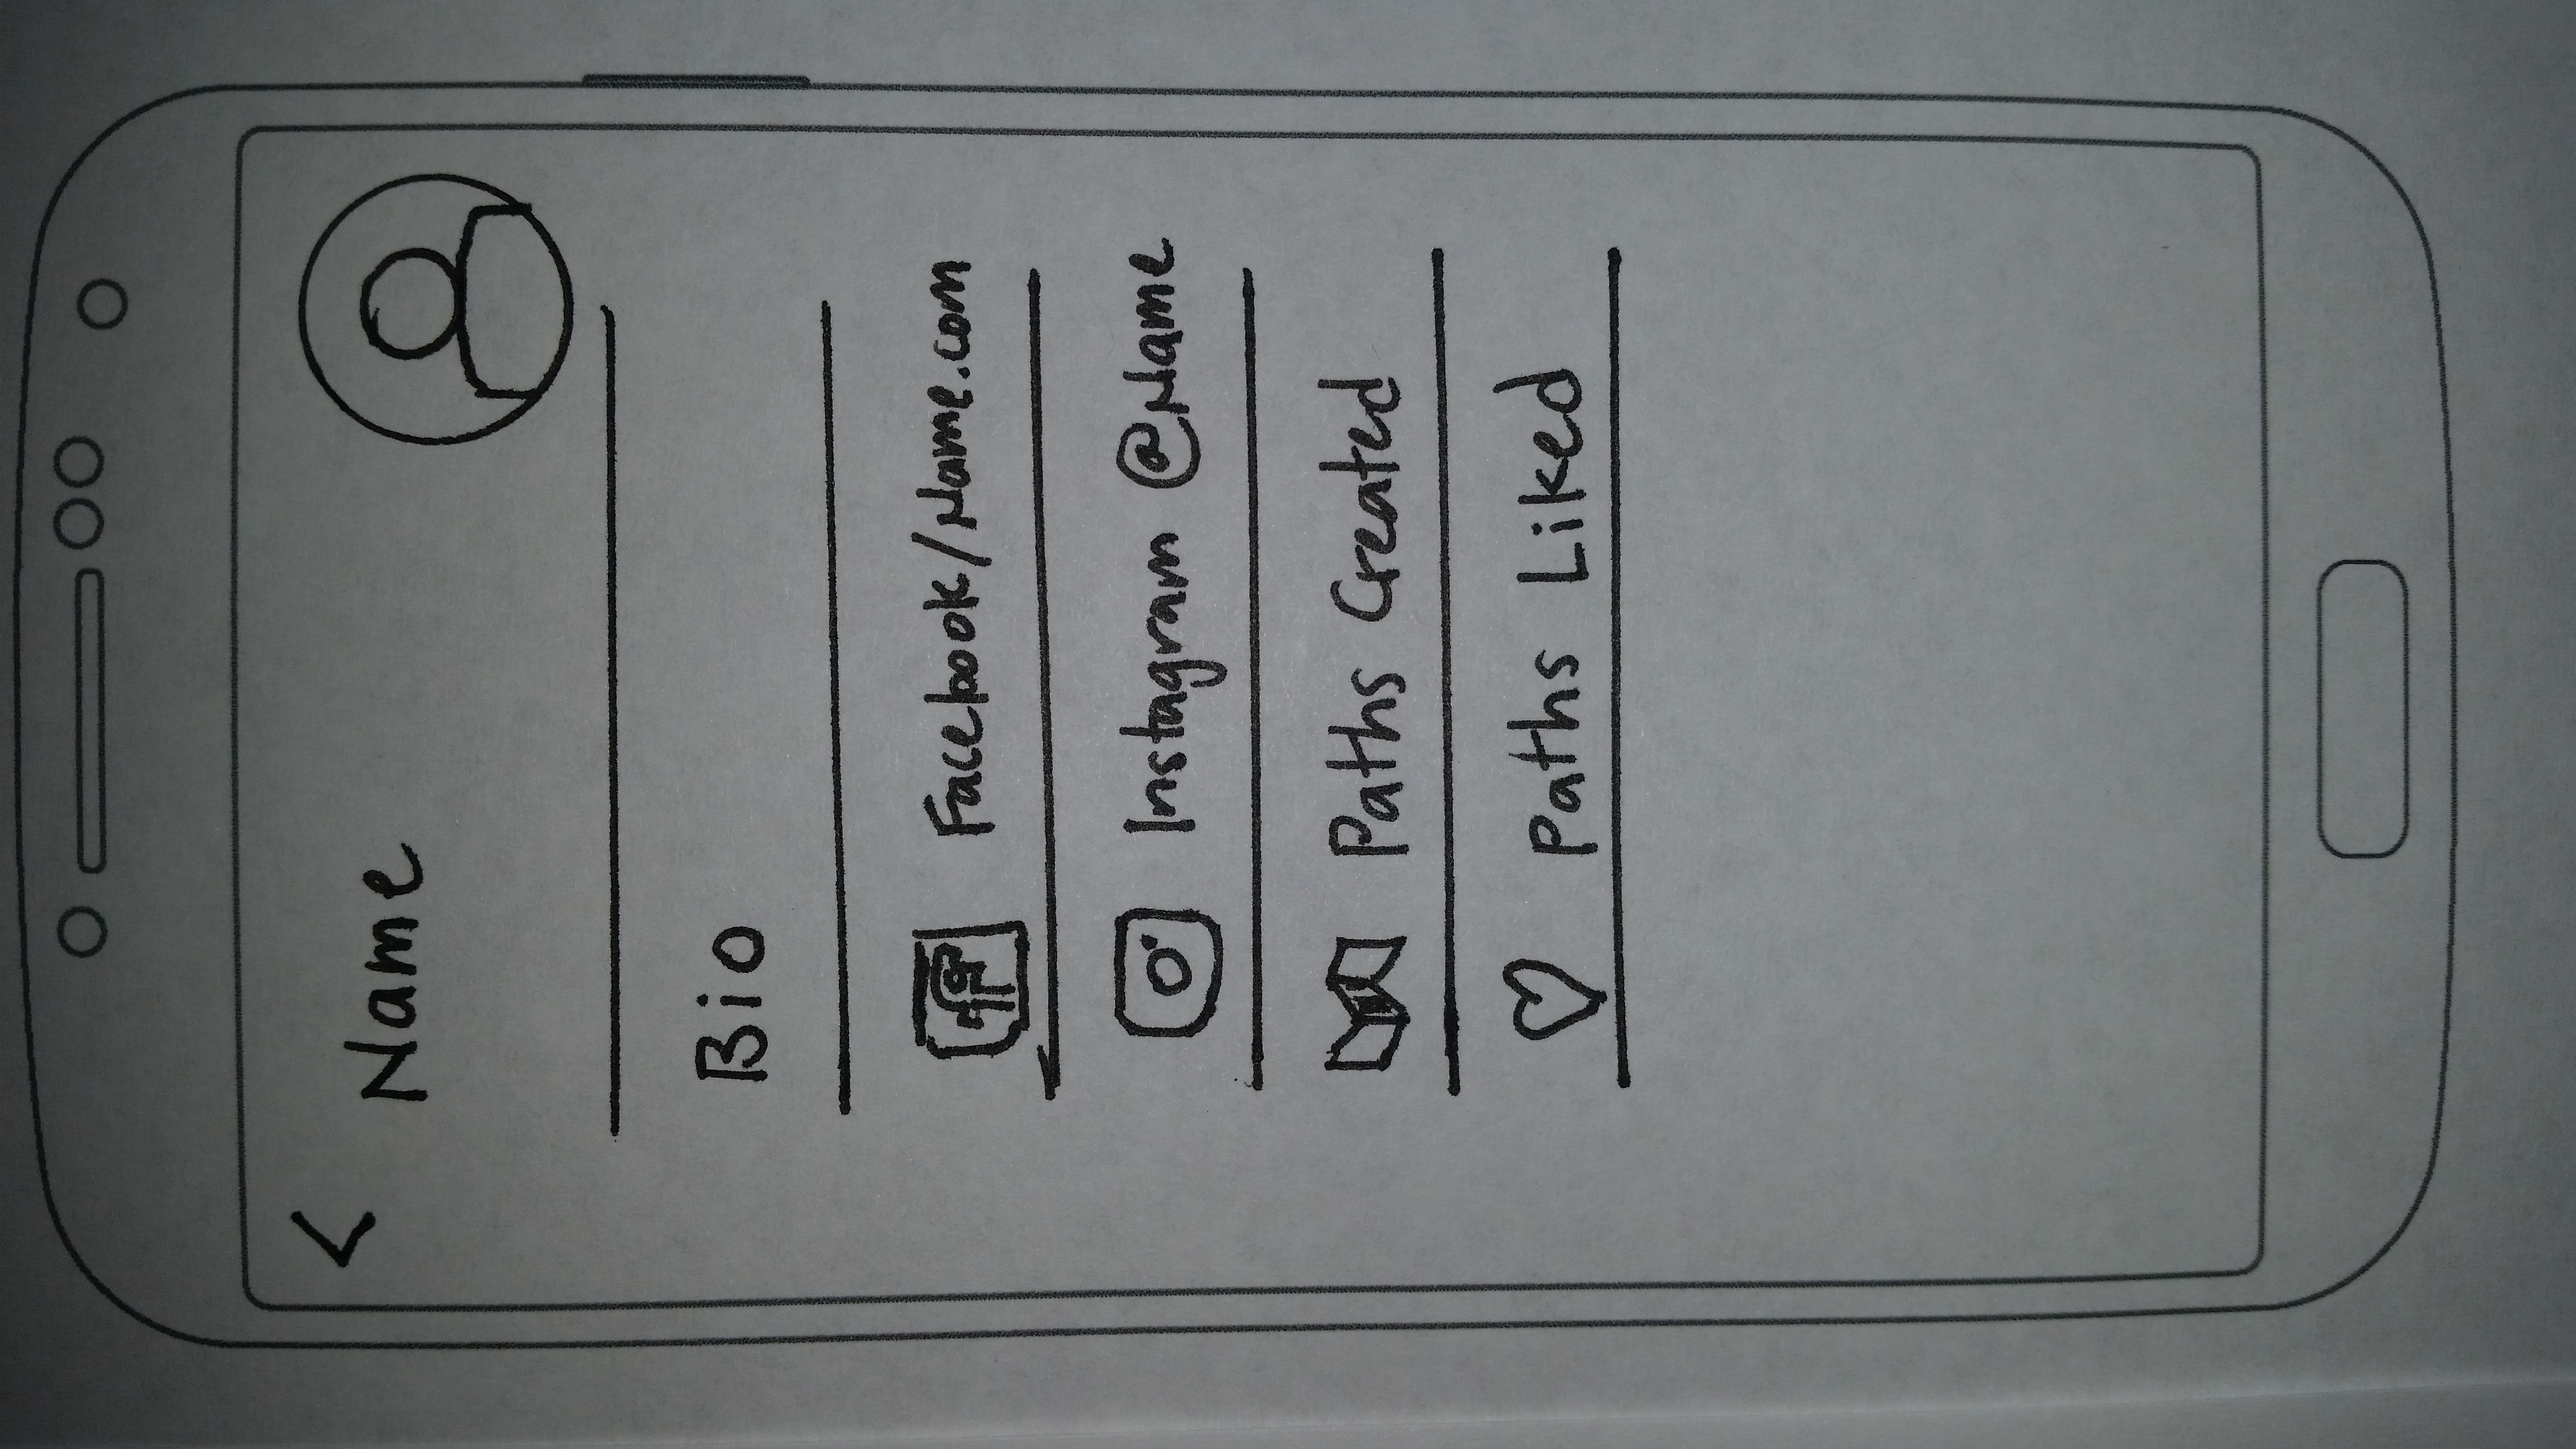 <
Name
Bio
f Facebook/Name.com
Instagram @Name
Paths Created
Paths Liked